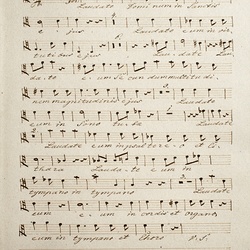 Laudate Dominum in Sanctis
ejus Laudate eum in vir
tutibus ejus Laudate
date eum secundum multitudi
nem magnitudinis ejus Laudate
eum in sono tubae
Laudate eum in psalterio et Ci
thara Laudate eum in
tympano in tympano Laudate
eum eum in cordis et organo
eum in tympano et Choro